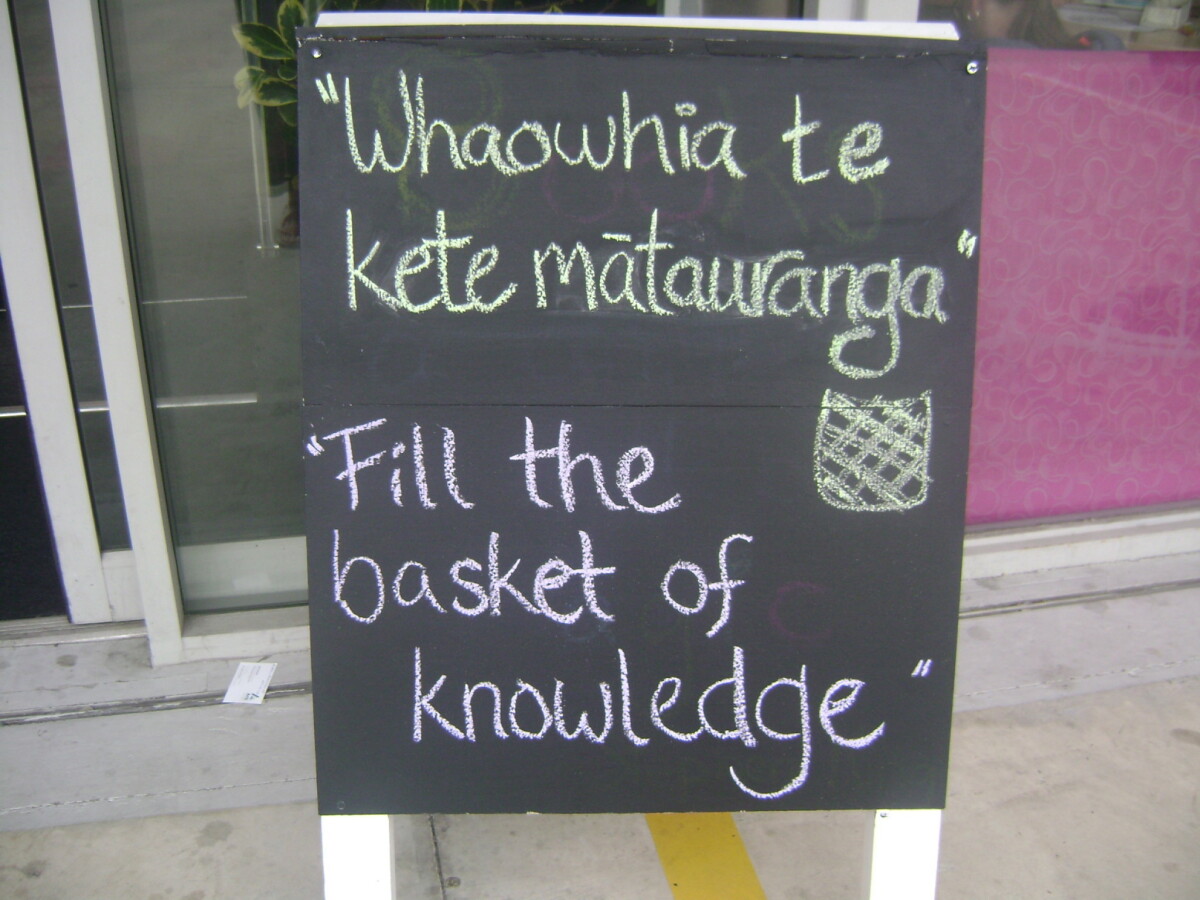 "Whaowhia te
kete mātauranga"
"Fill the
basket of
knowledge"